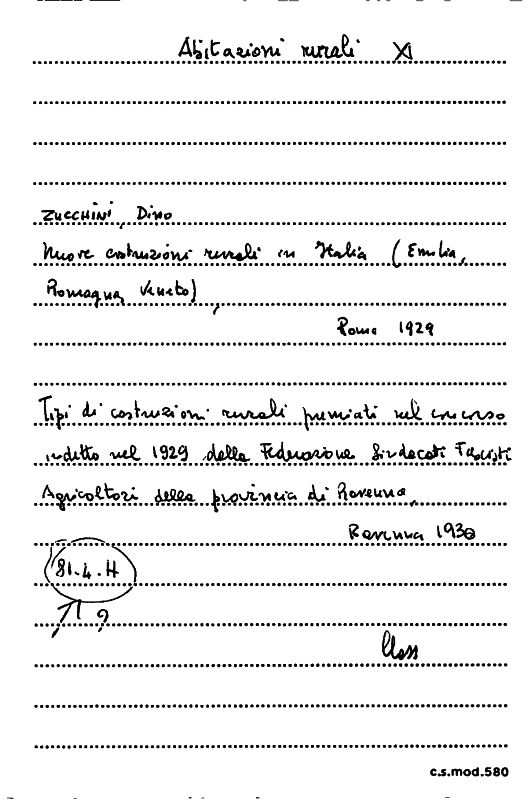 Abitazioni rurali XI
ZUCCHINI, Dino
Nuove costruzioni rurali in Italia (Emilia,
Romagna, Veneto),
Roma 1929
Tipi di costruzioni rurali premiati nel concorso
indetto nel 1929 della Federazione Sindacati Fascisti
Agricoltori della provincia di Ravenna,
Ravenna 1930
81.4.H
?
c.s.mod.580